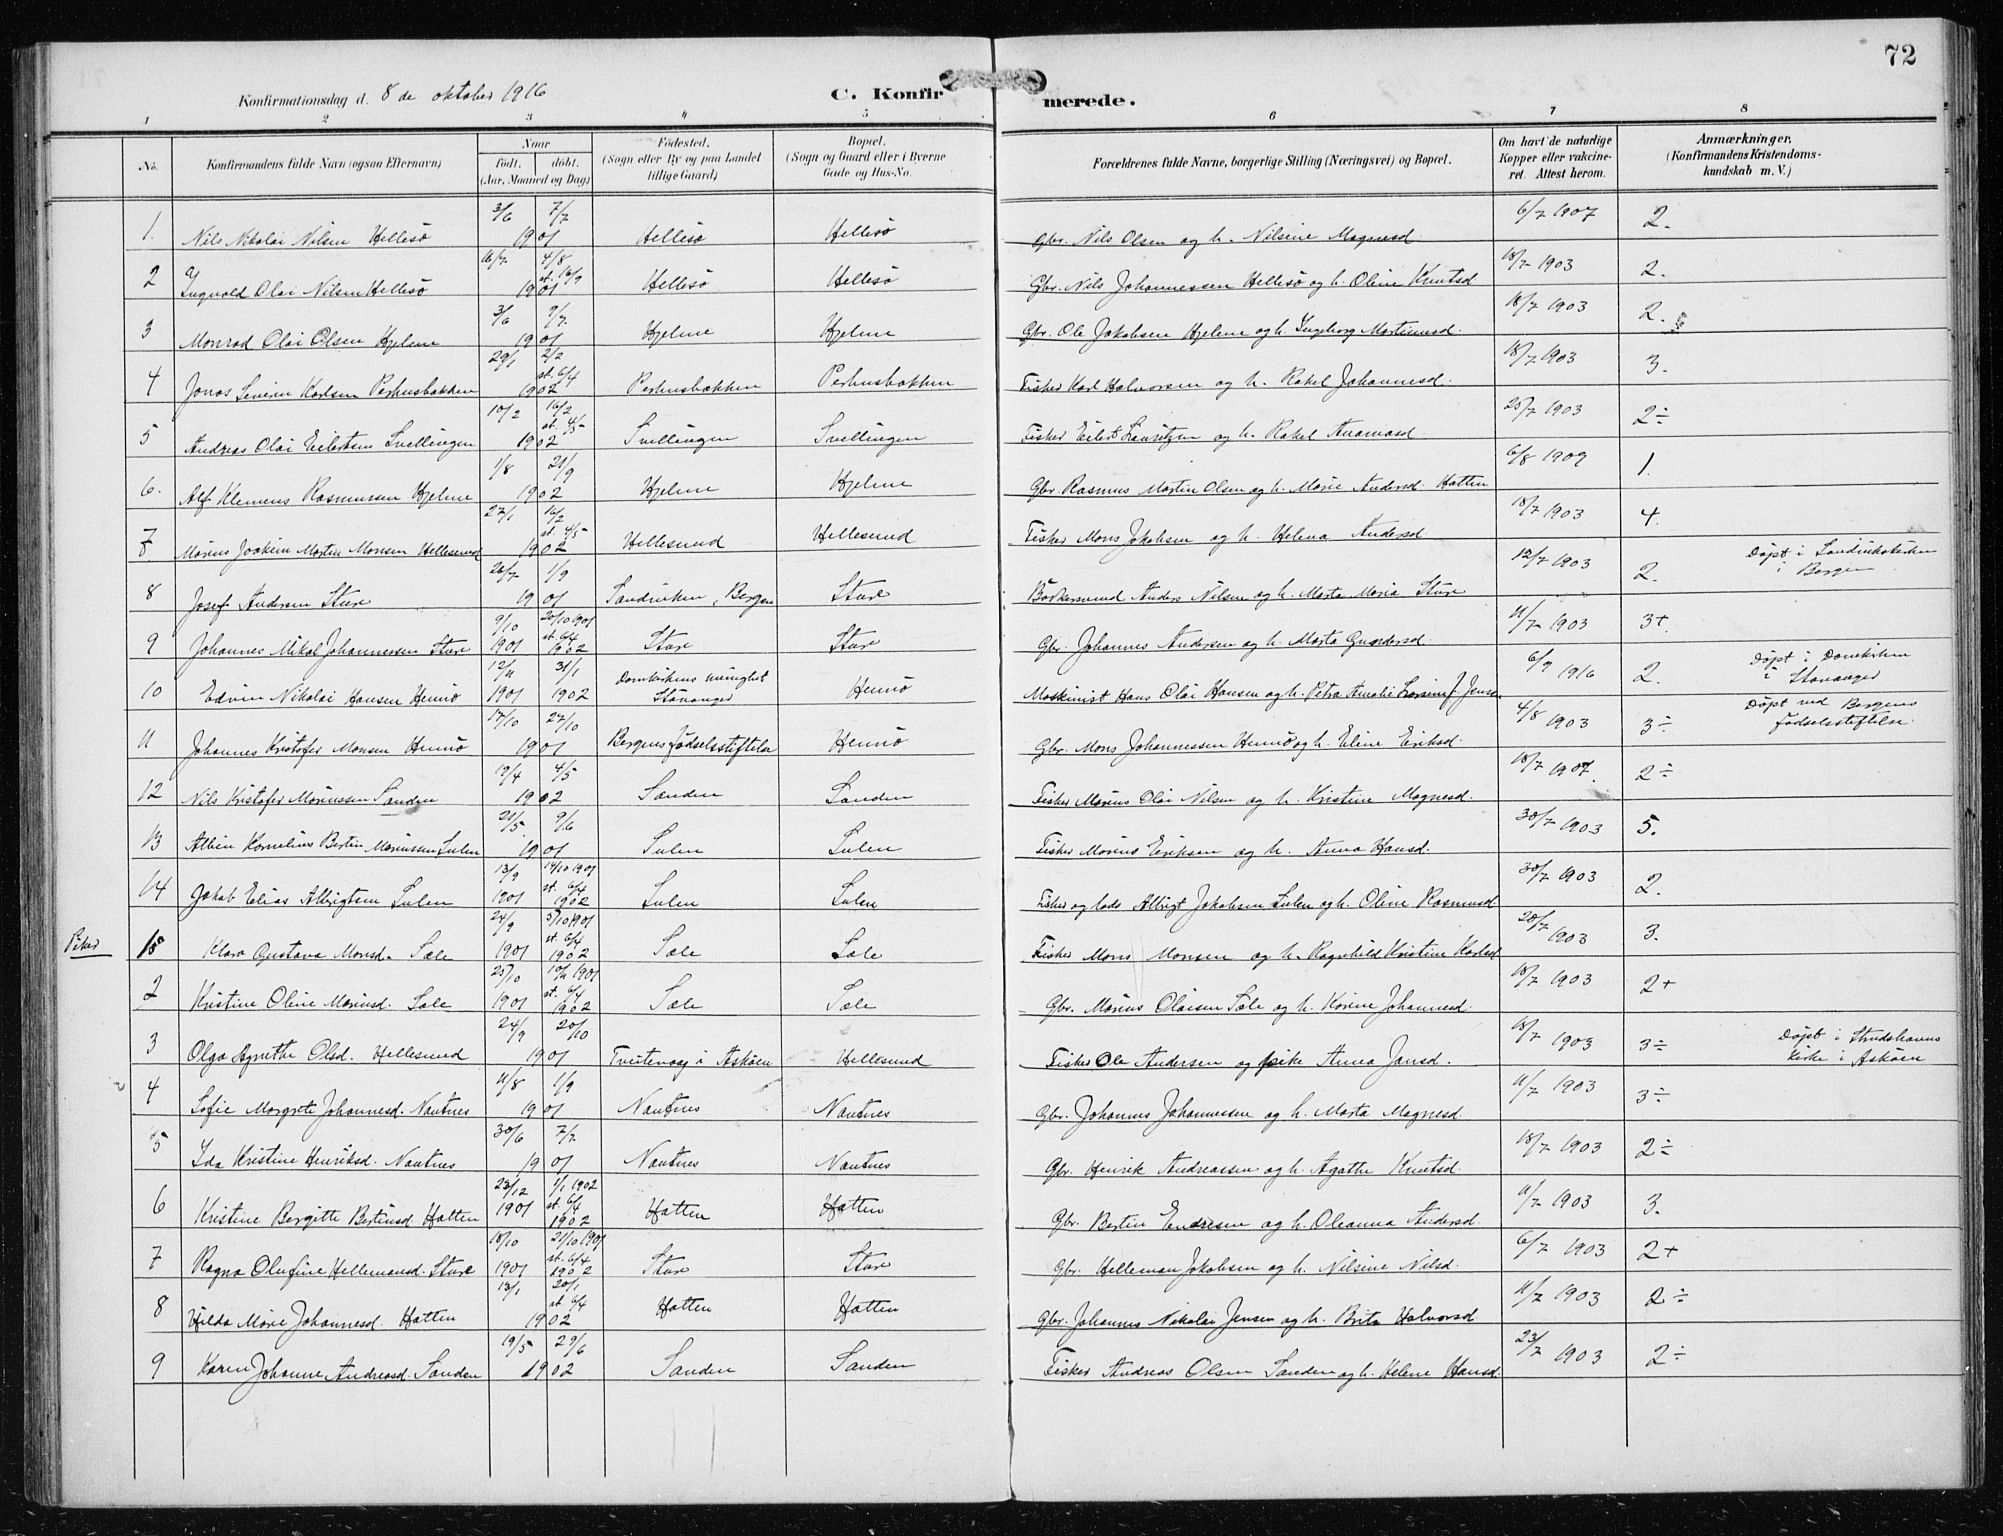 72
Konfirmationsdag d. 8 de oktober 1916
C. Konfirmerede.
1 2 3 4 5 6 7 8
No. Konfirmandens fulde Navn (ogsaa Efternavn) Naar født. døbt. (Aar, Maaned og Dag) Fødested. (Sogn eller By og paa Landet tillige Gaard) Bopæl. (Sogn og Gaard eller i Byerne Gade og Hus-No. Forældrenes fulde Navne, borgerlige Stilling (Næringsvei) og Bopæl. Om havt de naturlige Kopper eller vakcineret. Attest herom. Anmærkninger. (Konfirmandens Kristendomskundskab m. V.)
1. Nils Nikolai Nilsen Hellesø 3/6 7/7 1901 Hellesø Hellesø Gbr. Nils Olsen og h. Nilsine Magnesd. 6/7 1907 2.
2 Ingvald Olai Nilsen Hellesø 16/7 4/8 st. 16/9 1901 Hellesø Hellesø Gbr. Nils Johannessen Hellesø og h. Oline Knutsd 18/7 1903 2.
3 Monrad Olai Olsen Hjelme 3/6 9/7 1901 Hjelme Hjelme Gbr. Ole Jakobsen Hjelme og h. Ingeborg Martinusd. 18/7 1903 2.
4 Jonas Severin Karlsen Perhusbakken 29/1 2/2 st. 6/4 1902 Perhusbakken Perhusbakken Fisker Karl Halvorsen og h. Rakel Johannesd. 18/7 1903 3.
5 Andreas Olai Eilertsen Svellingen 10/2 16/2 st. 4/5 1902 Svellingen Svellingen Fisker Eilert Lauritzen og h. Rakel 25/7 1903 2÷
6. Alf Klemens Rasmussen Hjelme 1/8 21/9 1902 Hjelme Hjelme Gbr Rasmus Martin Olsen og h. Marie Andersd. Hatten 6/8 1909 1.
7 Marius Joakim Martin Monsen Hellesund 27/1 16/2 st. 4/5 1902 Hellesund Hellesund Fisker Mons Jakobsen og h. Helena Andersd 18/7 1903 4.
8 Josef Andersen Sture 20/7 1/9 1901 Sandviken, Bergen Sture Bødkersvend Anders Nilsen og h. Marta Maria Sture 12/7 1903 2. Døpt i Sandvikskirken i Bergen
9 Johannes Mikal Johannessen Sture 9/10 1901 20/10 1901 st. 6/4 1902 Sture Sture Gbr. Johannes Andersen og h. Marta Gundersd. 11/7 1903 3+.
10 Edvin Nikolai Hansen Hennø 12/11 1901 31/1 1902 Domkirkens menighet Stavanger Hennø Maskinist Hans Olai Hansen og h. Petra Amalie f. Jensen 6/9 1916 2. Døpt i Domkirken i Stavanger
11 Johannes Kristofer Monsen Hennø 17/10 27/10 1901 Bergens fødselsstiftelse Hennø Gbr. Mons Johannessen Hennø og h. Eline Eriksd. 4/8 1903 3÷ Døpt ved Bergens fødselsstiftelse.
12 Nils Kristofer Mariussen Sanden 19/4 4/5 1902 Sanden Sanden Fisker Marius Olai Nilsen og h. Kristine Magnesd. 18/7 1907. 2÷
13 Albin Kornelius Bertin Mariussen Sulen 21/5 9/6 1901 Sulen Sulen Fisker Marius Eriksen og h. Anna Hansd. 30/7 1903 5.
14 Jakob Elias Albrigtsen Sulen 13/9 1901 14/10 1901 st. 6/4 1902 Sulen Sulen Fisker og lods Albrigt Jakobsen Sulen og h. Oline Rasmusd 30/7 1903 2.
Piker 1 Klara Gustava Monsd. Sæle 24/9 1901 5/10 1901 st. 6/4 1902 Sæle Sæle Fisker Mons Monsen og h. Ragnhild Kristine Karlsd 20/7 1903 3.
2 Kristine Oline Mariusd. Sæle 25/10 1901 10/11 1901 st. 6/4 1902 Sæle Sæle Gbr. Marius Olaisen Sæle og h. Karine Johannesd. 18/7 1903 2+
3 Olga Agnethe Olsd. Hellesund 24/9 20/10 1901 Tveitevaag i Askøen Hellesund Fisker Ole Andersen og pike Anna Jansd. 18/7 1903 3÷ Døpt i Strudshavns kirke i Askøen
4 Sofie Margrete Johannesd. Nautnes 11/8 1/9 1901 Nautnes Nautnes Gbr. Johannes Johannessen og h. Marta Magnesd. 11/7 1903 3÷
5 Ida Kristine Henriksd. Nautnes 30/6 7/7 1901 Nautnes Nautnes Gbr. Henrik Andreassen og h. Agathe Knutsd. 18/7 1903 2÷
6 Kristine Bergitte Bertinsd. Hatten 23/12 1901 1/1 1902 st. 6/4 1902 Hatten Hatten Gbr. Bertin Endresen og h. Oleanna Andersd. 11/7 1903 3.
7 Ragna Olufine Hellemansd. Sture 18/10 1901 21/10 1901 st. 6/4 1902 Sture Sture Gbr. Helleman Jakobsen og h. Nilsine Nilsd. 6/7 1903 2+
8 Hilda Marie Johannesd. Hatten 13/1 20/1 st. 6/4 1902 Hatten Hatten Gbr. Johannes Nikolai Jensen og h. Brita Halvorsd 11/7 1903 2÷
9 Karen Johanne Andreasd. Sanden 19/5 29/6 1902 Sanden Sanden Fisker Andreas Olsen Sanden og h. Helene Hansd. 23/7 1903 2÷